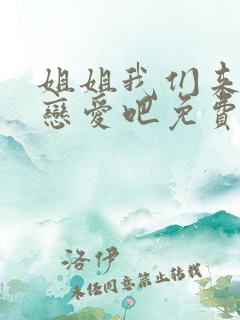 姐姐我们来
戀愛吧免費
洛伊
未经同意禁止转载